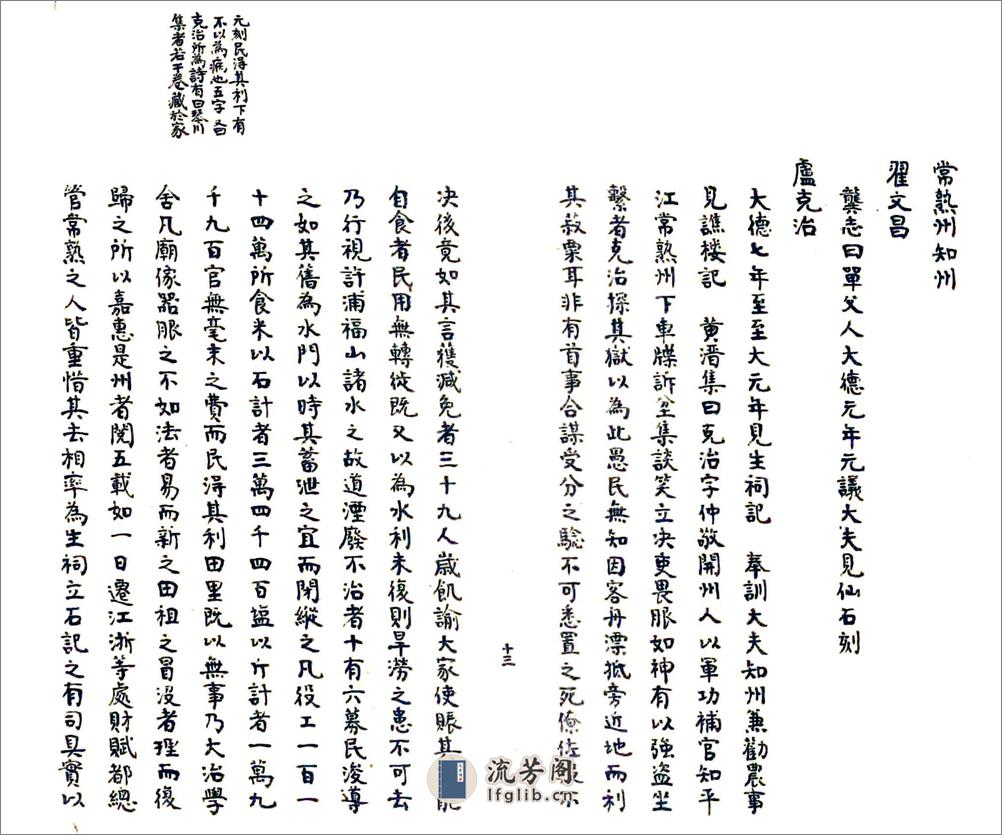 常熟州知州
翟文昌
龔志曰單父人大德元年元議大夫見仙石刻
盧克治
大德七年至至大元年見生祠記　奉訓大夫知州兼勸農事
見譙楼記　黄溍集曰克治字仲敬開州人以軍功補官知平
江常熟州下車牒訴坌集談笑立决吏畏服如神有以強盗坐
繫者克治探其獄以為此愚民無知因客舟漂抵旁近地而利
其菽粟耳非有首事合謀受分之驗不可悉置之死僚佐
决後竟如其言獲減免者三十九人歳飢諭大家使賑其
自食者民用無轉徙既又以為水利未復則旱澇之患不可去
乃行視許浦福山諸水之故道湮廢不治者十有六募民浚導
之如其舊為水門以時其蓄泄之宜而閉縱之凡役工一百一
十四萬所食米以石計者三萬四千四百鹽以斤計者一萬九
千九百官無毫末之費而民淂其利田里既以無事乃大治學
舍凡廟傢器服之不如法者易而新之田祖之冒没者理而復
歸之所以嘉惠是州者閱五載如一日遷江浙等處財賦都總
管常熟之人皆重惜其去相率為生祠立石記之有司具實以
元刻民淂其利下有
不以為病也五字又曰
克治所為詩有曰琴川
集者若干卷藏於家
十三
流芳阁
lfglib.cf